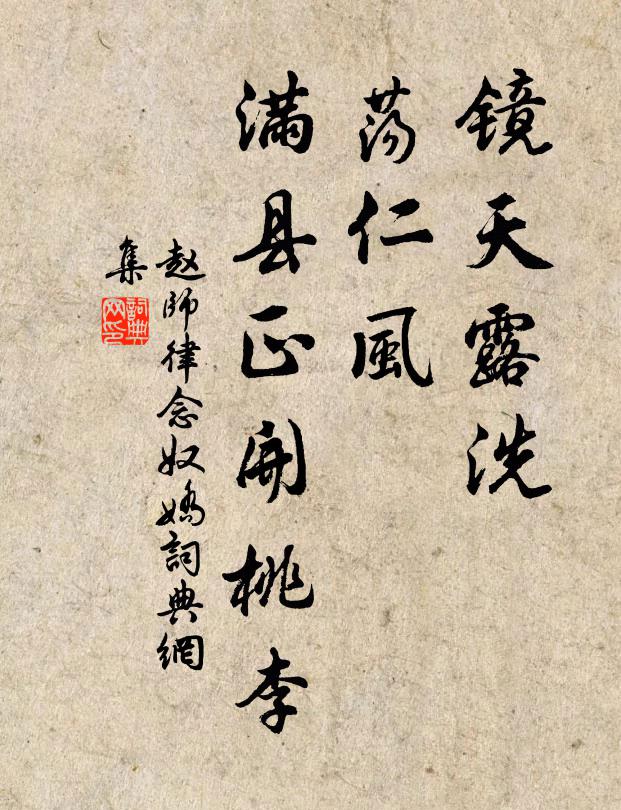 镜天露洗
荡仁風
满县正開桃李
赵師律念奴嬌詞典網
集
詞典网印